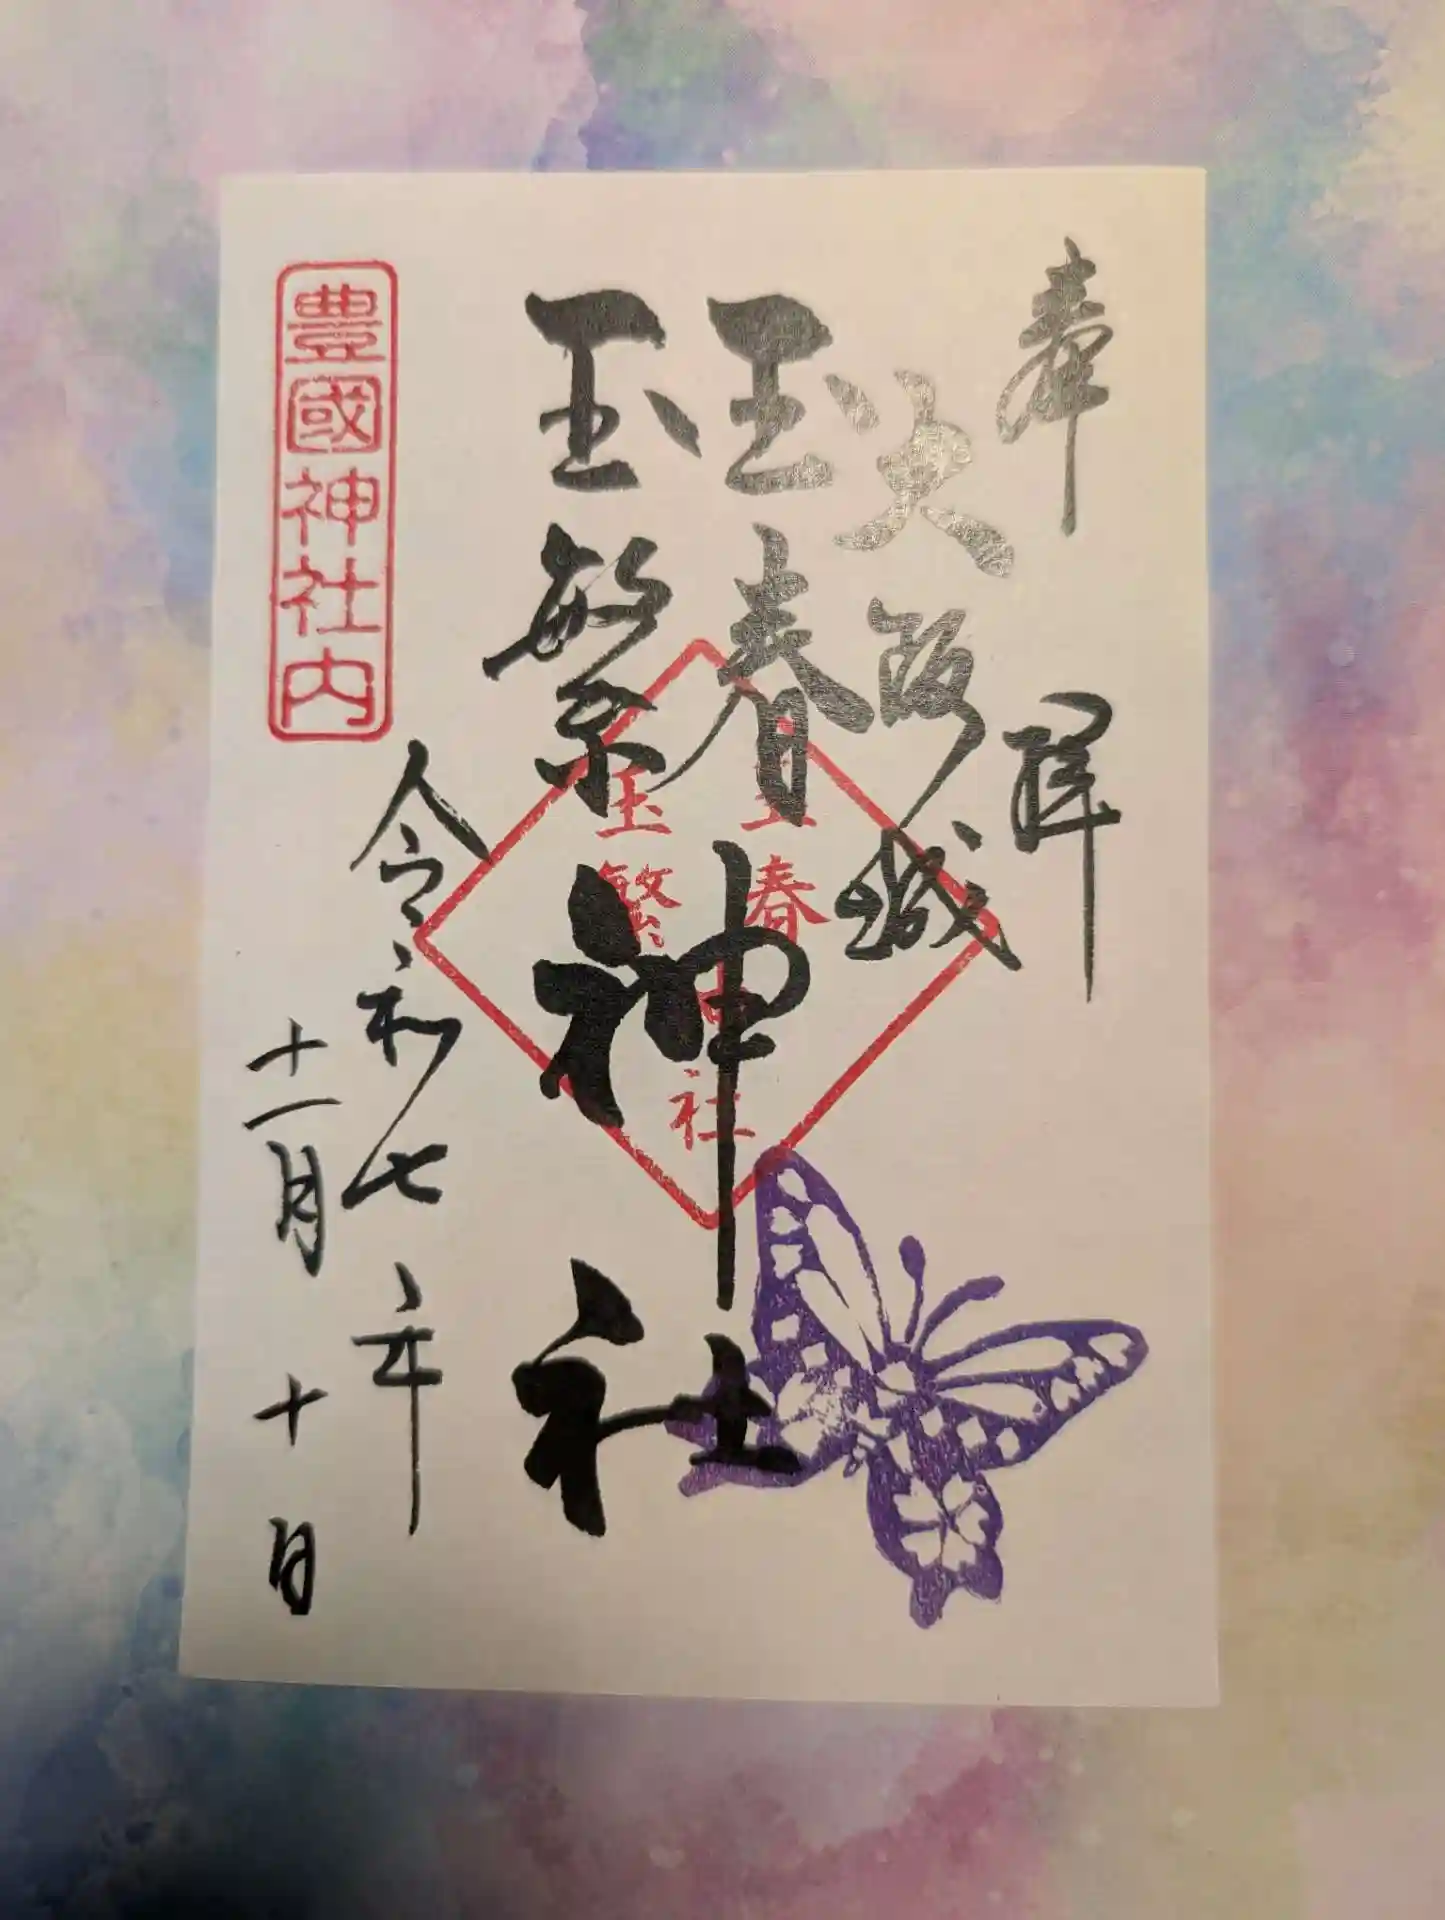 奉拝
大阪城
玉春
玉繁
神社
玉春
玉繁
神社
令和七年
十一月十日
豊國神社内